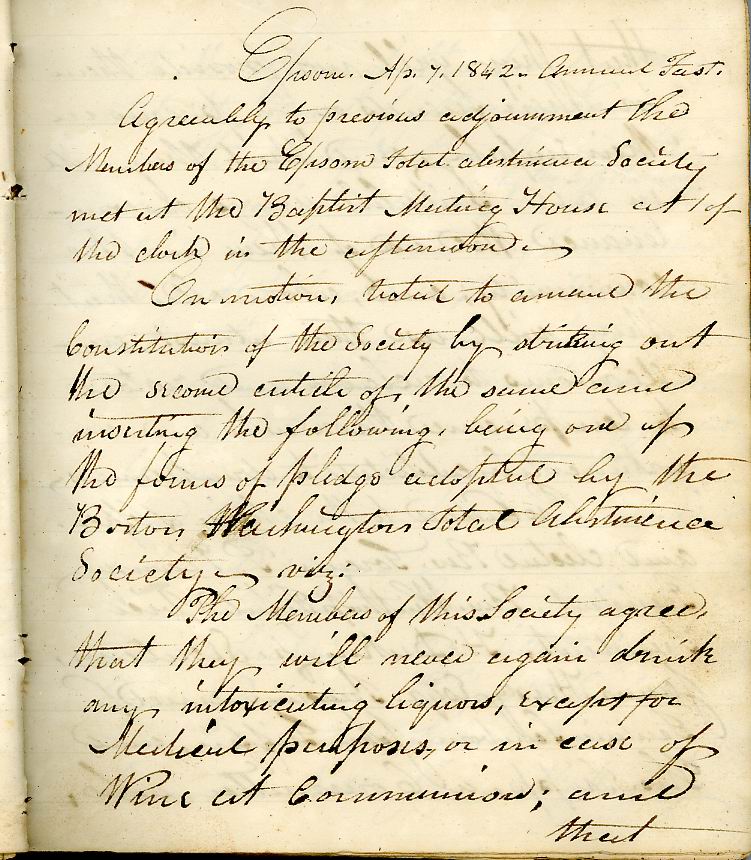 Epsom. Ap. 7. 1842. Annual Fast.
Agreeably to previous adjournment the
Members of the Epsom Total abstinence Society
met at the Baptist Meeting House at 1 of
the clock in the afternoon.
On motion, voted to amend the
Constitution of the Society by striking out
the second article of the same and
inserting the following, being one of
the forms of pledge adopted by the
Boston Washington Total Abstinence
Society viz:
The Members of this Society agree,
that they will never again drink
any intoxicating liquors, except for
Medical purposes, or in case of
Wine at Communion; and
that